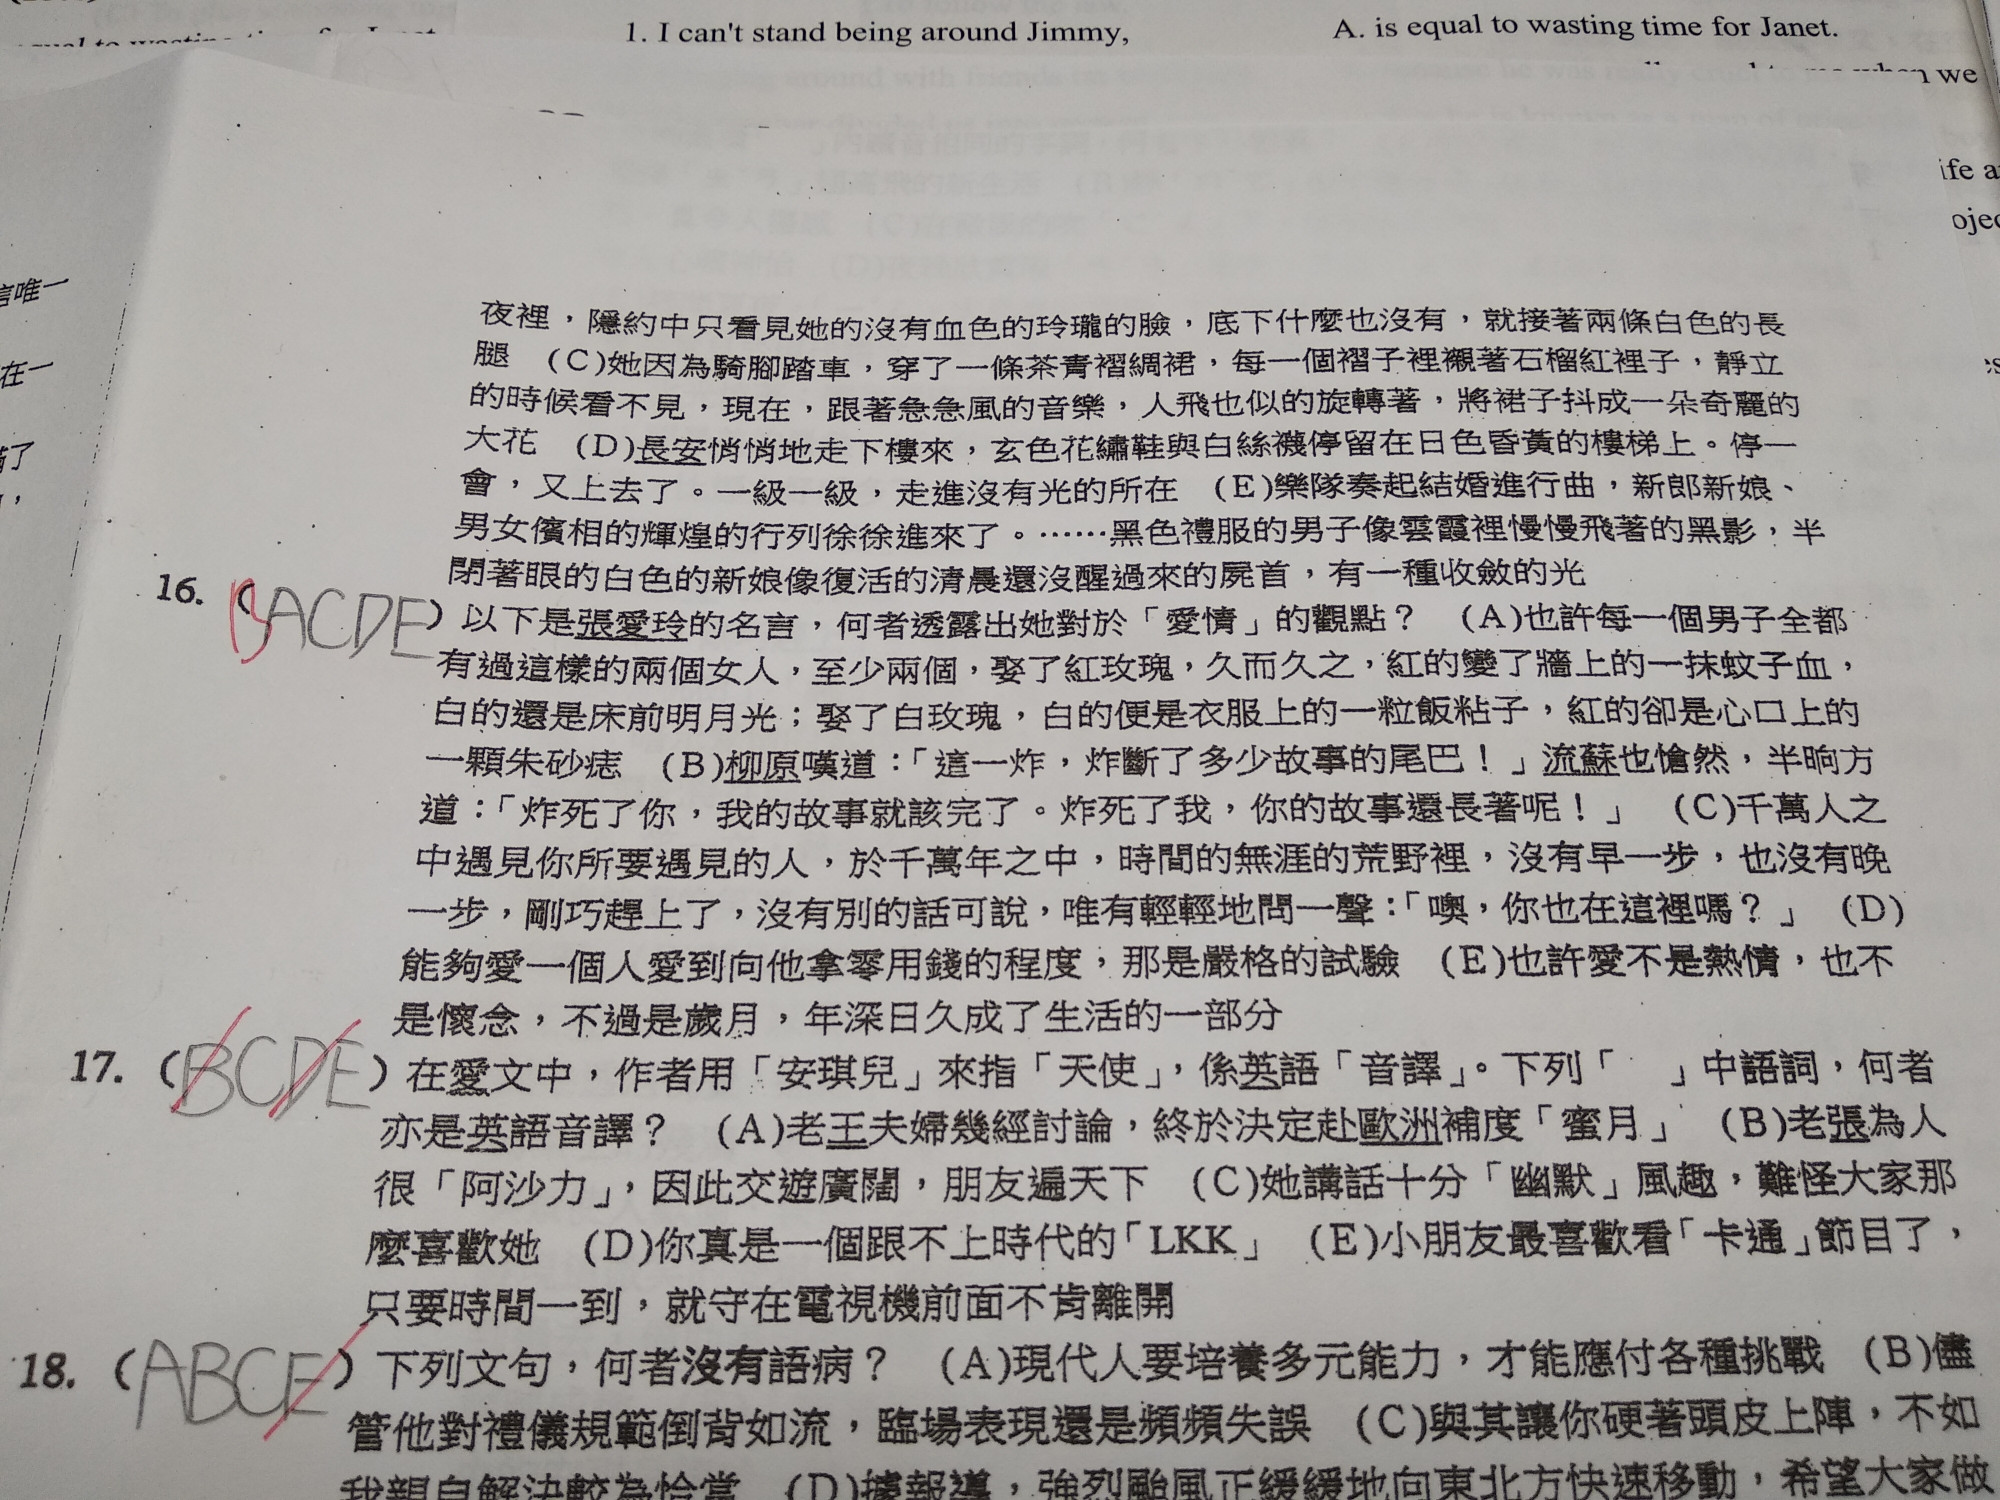 1. I can't stand being around Jimmy,
A. is equal to wasting time for Janet.
when we
ife a
ojec
言唯一
在一
夜裡，隱約中只看見她的沒有血色的玲瓏的臉，底下什麼也沒有，就接著兩條白色的長
腿 (C)她因為騎腳踏車，穿了一條茶青褶綢裙，每一個褶子裡襯著石榴紅裡子，靜立
的時候看不見，現在，跟著急急風的音樂，人飛也似的旋轉著，將裙子抖成一朵奇麗的
大花 (D)長安悄悄地走下樓來，玄色花繡鞋與白絲襪停留在日色昏黃的樓梯上。停一
會，又上去了。一級一級，走進沒有光的所在 (E)樂隊奏起結婚進行曲，新郎新娘、
男女儐相的輝煌的行列徐徐進來了。……黑色禮服的男子像雲霞裡慢慢飛著的黑影，半
閉著眼的白色的新娘像復活的清晨還沒醒過來的屍首，有一種收斂的光
16. (BACDE) 以下是張愛玲的名言，何者透露出她對於「愛情」的觀點？ (A)也許每一個男子全都
有過這樣的兩個女人，至少兩個，娶了紅玫瑰，久而久之，紅的變了牆上的一抹蚊子血，
白的還是床前明月光；娶了白玫瑰，白的便是衣服上的一粒飯粘子，紅的卻是心口上的
一顆朱砂痣 (B)柳原嘆道：「這一炸，炸斷了多少故事的尾巴！」流蘇也愴然，半晌方
道：「炸死了你，我的故事就該完了。炸死了我，你的故事還長著呢！」 (C)千萬人之
中遇見你所要遇見的人，於千萬年之中，時間的無涯的荒野裡，沒有早一步，也沒有晚
一步，剛巧趕上了，沒有別的話可說，唯有輕輕地問一聲：「噢，你也在這裡嗎？」 (D)
能夠愛一個人愛到向他拿零用錢的程度，那是嚴格的試驗 (E)也許愛不是熱情，也不
是懷念，不過是歲月，年深日久成了生活的一部分
17. (BCDE) 在愛文中，作者用「安琪兒」來指「天使」，係英語「音譯」。下列「 」中語詞，何者
亦是英語音譯？ (A)老王夫婦幾經討論，終於決定赴歐洲補度「蜜月」 (B)老張為人
很「阿沙力」，因此交遊廣闊，朋友遍天下 (C)她講話十分「幽默」風趣，難怪大家那
麼喜歡她 (D)你真是一個跟不上時代的「LKK」 (E)小朋友最喜歡看「卡通」節目了，
只要時間一到，就守在電視機前面不肯離開
18. (ABCE) 下列文句，何者沒有語病？ (A)現代人要培養多元能力，才能應付各種挑戰 (B)儘
管他對禮儀規範倒背如流，臨場表現還是頻頻失誤 (C)與其讓你硬著頭皮上陣，不如
我親自解決較為恰當 (D)據報導，強烈颱風正緩緩地向東北方快速移動，希望大家做